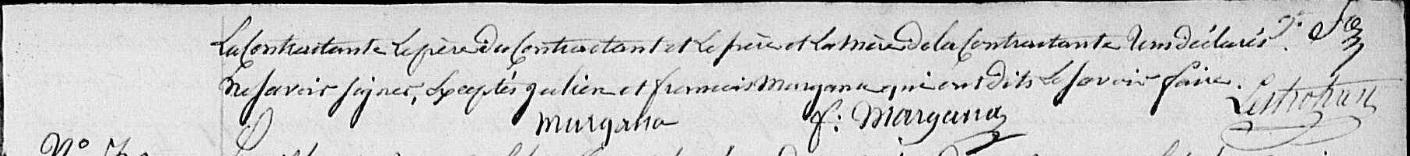 La Contractante Le père du Contractant et Le père et La Mère de la Contractante Nous déclarés
Ne savoir signer, Exceptés julien et francois Margana qui ont dits Le savoir faire.
Margana f: Margana
N°